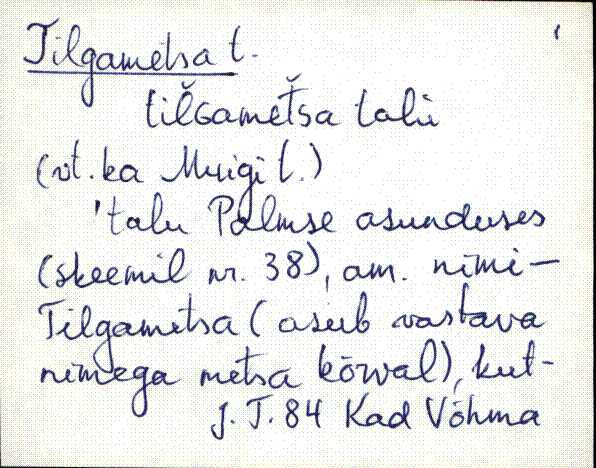 Tilgametsa t.
tiľGameťsa talu
(vt. ka Muigi t.)
'talu Palmse asunduses
(skeemil nr. 38), am. nimi –
Tilgametsa (asub vastava
nimega metsa kõrval), kut-
J. T. 84 Kad Võhma